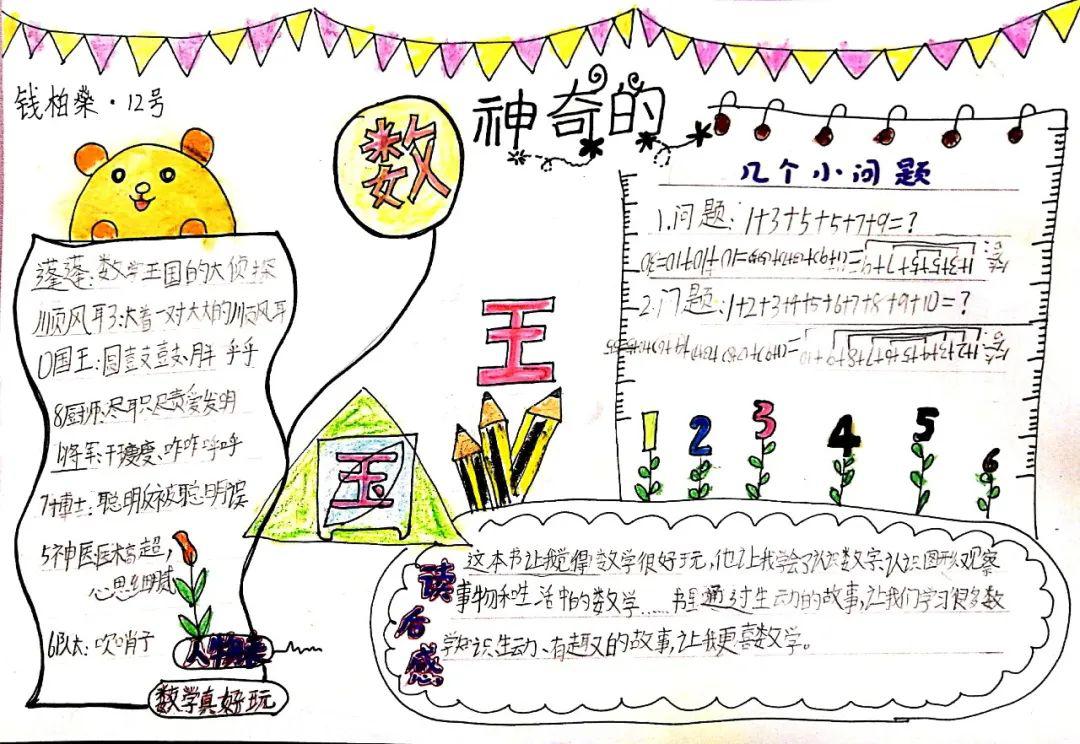 钱柏燊·12号
神奇的
数
王
国
几个小问题
1.问题:1+3+5+5+7+9=?
答:1+3+5+5+7+9=(1+9)+(3+7)+(5+5)=10+10+10=30
2.问题:1+2+3+4+5+6+7+8+9+10=?
1 2 3 4 5 6
蓬蓬:数学王国的大侦探
顺风耳3:长着一对大大的顺风耳
0国王:圆鼓鼓、胖乎乎
8厨师:尽职尽责爱发明
1将军:干瘦瘦、咋咋呼呼
7博士:聪明反被聪明误
5神医:医术高超,
心思细腻
6队长:吹哨子
人物表
数学真好玩
读后感
这本书让我觉得数学很好玩,他让我学会了认识数字、认识图形、观察
事物和生活中的数学……书里通过生动的故事,让我们学习很多数
学知识,生动、有趣的故事,让我更喜数学。